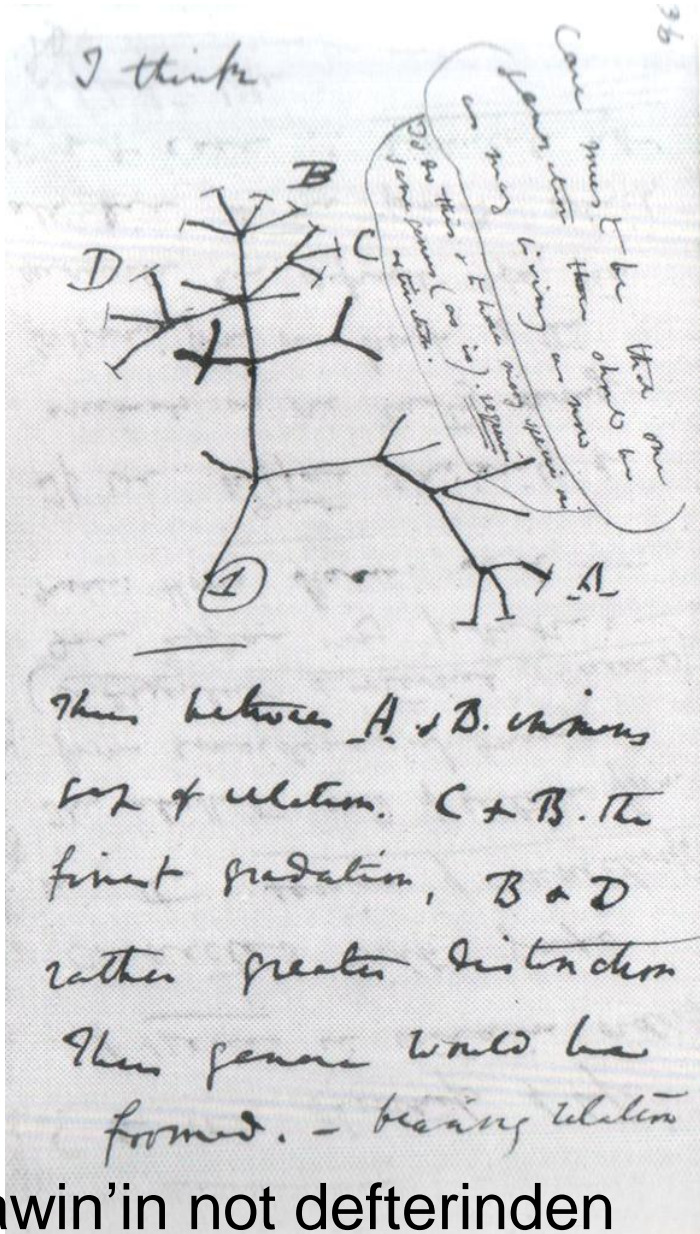 36
I think
Case must be that one
generation then should be
as many living as now
To do this & to have many species in
same genus (as is). requires
extinction.
B
C
D
A
1
Thus between A & B. immense
gap of relation. C & B. The
finest gradation, B & D
rather greater distinction
Thus genera would be
formed. – bearing relation
awin’in not defterinden